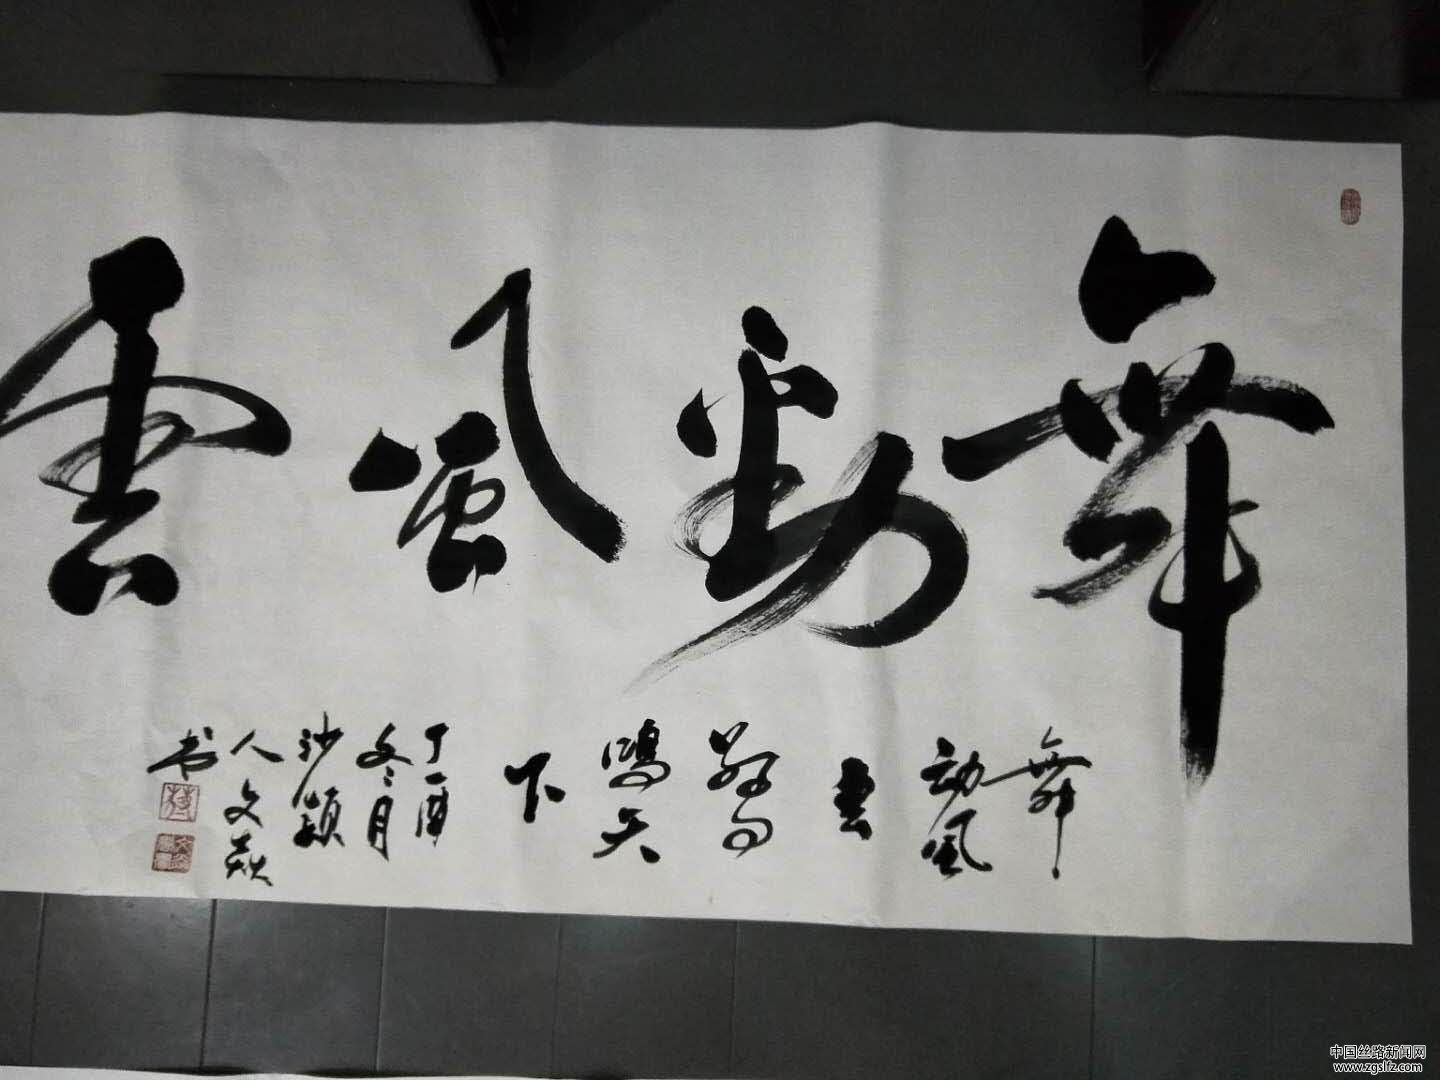 舞動風雲
舞
动风
云
惊
鸿天
下
丁酉
冬月
沙颍
人文焱
书
中国丝路新闻网
www.zgslfz.com